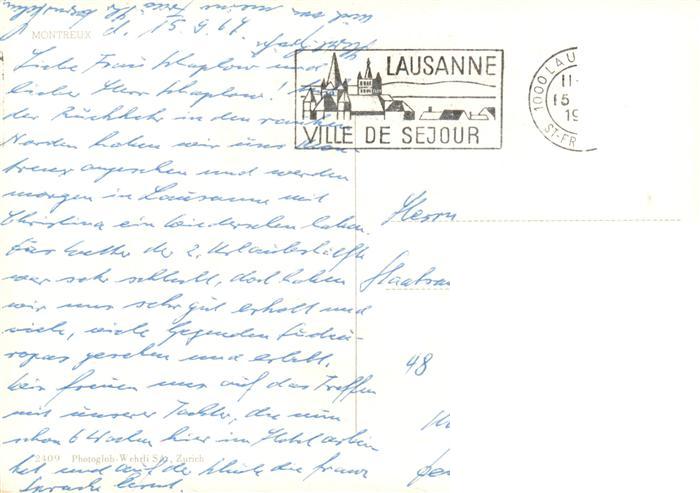 MONTREUX d. 15.9.67.
Liebe Frau Schaplow und
lieber Herr Schaplow! Auf
der Rückkehr in den rauhen
Norden haben wir uns Mon
treux angesehen und werden
morgen in Lausanne mit
Christina ein Wiedersehen haben.
Das Wetter der 2. Urlaubshälfte
war sehr schlecht, doch haben
wir uns sehr gut erholt und
viele, viele Gegenden Südeu-
ropas gesehen und erlebt.
Wir freuen uns auf das Treffen
mit unserer Tochter, die nun
schon 6 Wochen hier im Hotel arbei
tet und auf der Schule die franz
Sprache lernt.
2409 Photoglob-Wehrli SA, Zurich
LAUSANNE
VILLE DE SEJOUR
1000 LAU
11-
15
19
ST-FR
Herrn
Staatsan
48